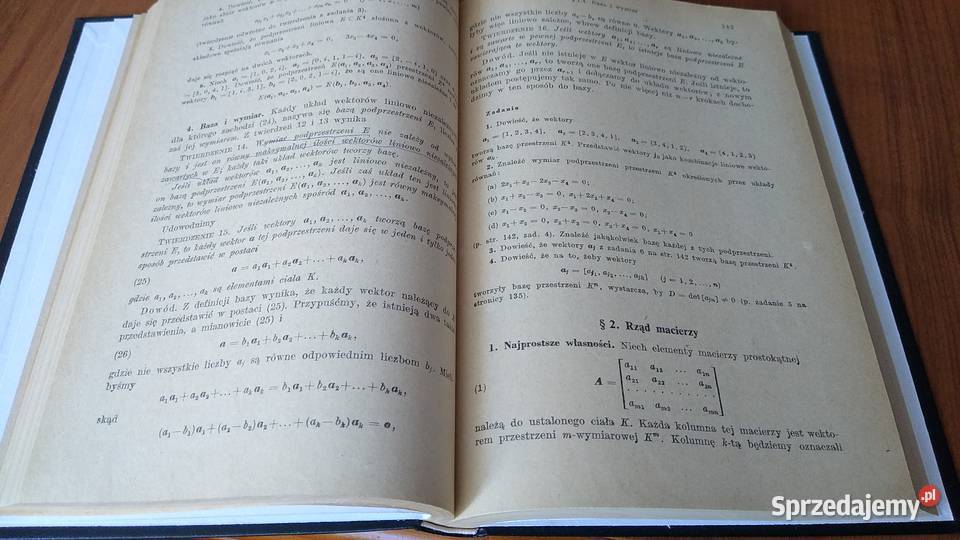 (twierdzenie odwrotne do twierdzenia z zadania 3).
5. Dowieść, że podprzestrzeń liniowa E ⊂ K⁴ złożona z wektorów,
układowe spełniają równania
daje się rozpiąć na dwóch wektorach.
4. Baza i wymiar. Każdy układ wektorów liniowo
dla którego zachodzi (24), nazywa się bazą podprzestrzeni E,
zaś jej wymiarem. Z twierdzeń 12 i 13 wynika
TWIERDZENIE 14. Wymiar podprzestrzeni E nie zależy od
bazy i jest on równy maksymalnej ilości wektorów liniowo
zawartych w E; każdy taki układ wektorów tworzy bazę.
Jeśli układ wektorów a₁, a₂, ..., aₖ jest liniowo niezależny, to
on bazą podprzestrzeni E(a₁, a₂, ..., aₖ). Jeśli zaś układ ten jest
zależny, to wymiar podprzestrzeni E(a₁, a₂, ..., aₖ) jest równy
ilości wektorów liniowo niezależnych spośród a₁, a₂, ..., aₖ.
Udowodnimy
TWIERDZENIE 15. Jeśli wektory a₁, a₂, ..., aₖ tworzą bazę
strzeni E, to każdy wektor a tej podprzestrzeni daje się w jeden i tylko
sposób przedstawić w postaci
(25) a = a₁a₁+a₂a₂+...+aₖaₖ,
gdzie a₁, a₂, ..., aₖ są elementami ciała K.
Dowód. Z definicji bazy wynika, że każdy wektor należący do
daje się przedstawić w postaci (25). Przypuśćmy, że istnieją dwa
przedstawienia, a mianowicie (25) i
(26) a = b₁a₁+b₂a₂+...+bₖaₖ,
gdzie nie wszystkie liczby aⱼ są równe odpowiednim liczbom bⱼ.
byśmy
a₁a₁+a₂a₂+...+aₖaₖ = b₁a₁+b₂a₂+...+bₖaₖ,
skąd
(a₁−b₁)a₁+(a₂−b₂)a₂+...+(aₖ−bₖ)aₖ = o,
gdzie nie wszystkie liczby aⱼ−bⱼ są równe 0. Wektory a₁, a₂, ..., aₖ by-
łyby więc liniowo zależne, wbrew definicji bazy.
TWIERDZENIE 16. Jeśli wektory a₁, ..., aᵣ są liniowo niezależne
i są zawarte w pewnej podprzestrzeni E, to istnieje baza podprzestrzeni E
zawierająca te wektory.
Dowód. Jeśli nie istnieje w E wektor liniowo niezależny od wekto-
rów a₁, a₂, ..., aᵣ, to tworzą one bazę podprzestrzeni E. Jeśli istnieje, to
oznaczamy go przez aᵣ₊₁ i dołączamy do układu wektorów; z nowym
układem postępujemy tak samo. Po nie więcej niż n−r krokach docho-
dzimy w ten sposób do bazy.
Zadania
1. Dowieść, że wektory
a₁ = [1, 2, 3, 4], a₂ = [2, 3, 4, 1], a₃ = [3, 4, 1, 2], a₄ = [4, 1, 2, 3]
tworzą bazę przestrzeni K⁴. Przedstawić wektory jⱼ jako kombinacje liniowe wekto-
rów aₖ.
2. Znaleźć wymiar podprzestrzeni przestrzeni K⁴ określonych przez układy
równań:
(a) 2x₁+x₂−2x₃−x₄ = 0;
(b) x₁+x₂−x₃ = 0, x₁+2x₂+x₄ = 0;
(c) x₁−x₂ = 0, x₂−x₃ = 0, x₃−x₄ = 0;
(d) x₁+x₂ = 0, x₂+x₃ = 0, x₃+x₄ = 0, x₁+x₄ = 0
(p. str. 142, zad. 4). Znaleźć jakąkolwiek bazę każdej z tych podprzestrzeni.
3. Dowieść, że wektory aⱼ z zadania 6 na str. 142 tworzą bazę przestrzeni K⁴.
4. Dowieść, że na to, żeby wektory
aⱼ = [aⱼ₁, aⱼ₂, ..., aⱼₙ] (j = 1, 2, ..., n)
tworzyły bazę przestrzeni Kⁿ, wystarcza, by D = det[aⱼₖ] ≠ 0 (p. zadanie 5 na
stronicy 135).
§ 2. Rząd macierzy
1. Najprostsze własności. Niech elementy macierzy prostokątnej
a₁₁ a₁₂ ... a₁ₙ
(1) A = a₂₁ a₂₂ ... a₂ₙ
. . . . . . . . . .
aₘ₁ aₘ₂ ... aₘₙ
należą do ustalonego ciała K. Każda kolumna tej macierzy jest wekto-
rem przestrzeni m-wymiarowej Kᵐ. Kolumnę k-tą będziemy oznaczali
Sprzedajemy.pl